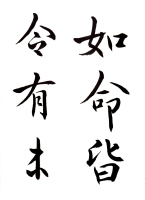 如命皆
令有未